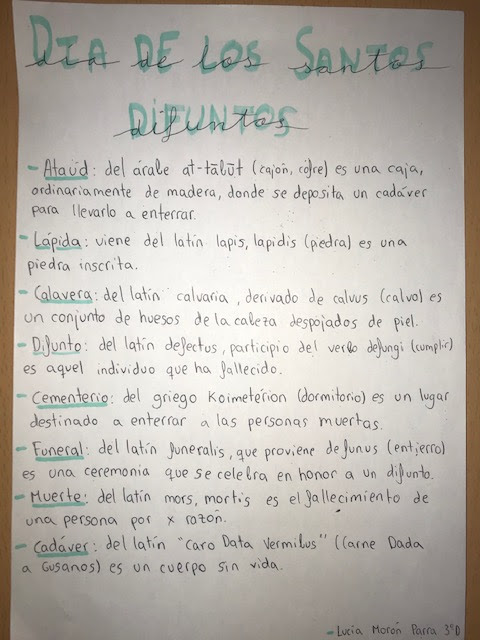 DIA DE LOS SANTOS
dia de los santos
DIFUNTOS
difuntos
- Ataúd: del árabe at-tālūt (cajón, cofre) es una caja,
ordinariamente de madera, donde se deposita un cadáver
para llevarlo a enterrar.
- Lápida: viene del latín lapis, lapidis (piedra) es una
piedra inscrita.
- Calavera: del latín calvaria, derivado de calvus (calvo) es
un conjunto de huesos de la cabeza despojados de piel.
- Difunto: del latín defectus, participio del verbo defungi (cumplir)
es aquel individuo que ha fallecido.
- Cementerio: del griego Koimeterion (dormitorio) es un lugar
destinado a enterrar a las personas muertas.
- Funeral: del latín funeralis, que proviene de funus (entierro)
es una ceremonia que se celebra en honor a un difunto.
- Muerte: del latín mors, mortis es el fallecimiento de
una persona por x razón.
- Cadáver: del latín "Caro Data Vermibus" ((arne Dada
a Gusanos) es un cuerpo sin vida.
- Lucía Morón Parra 3ºD